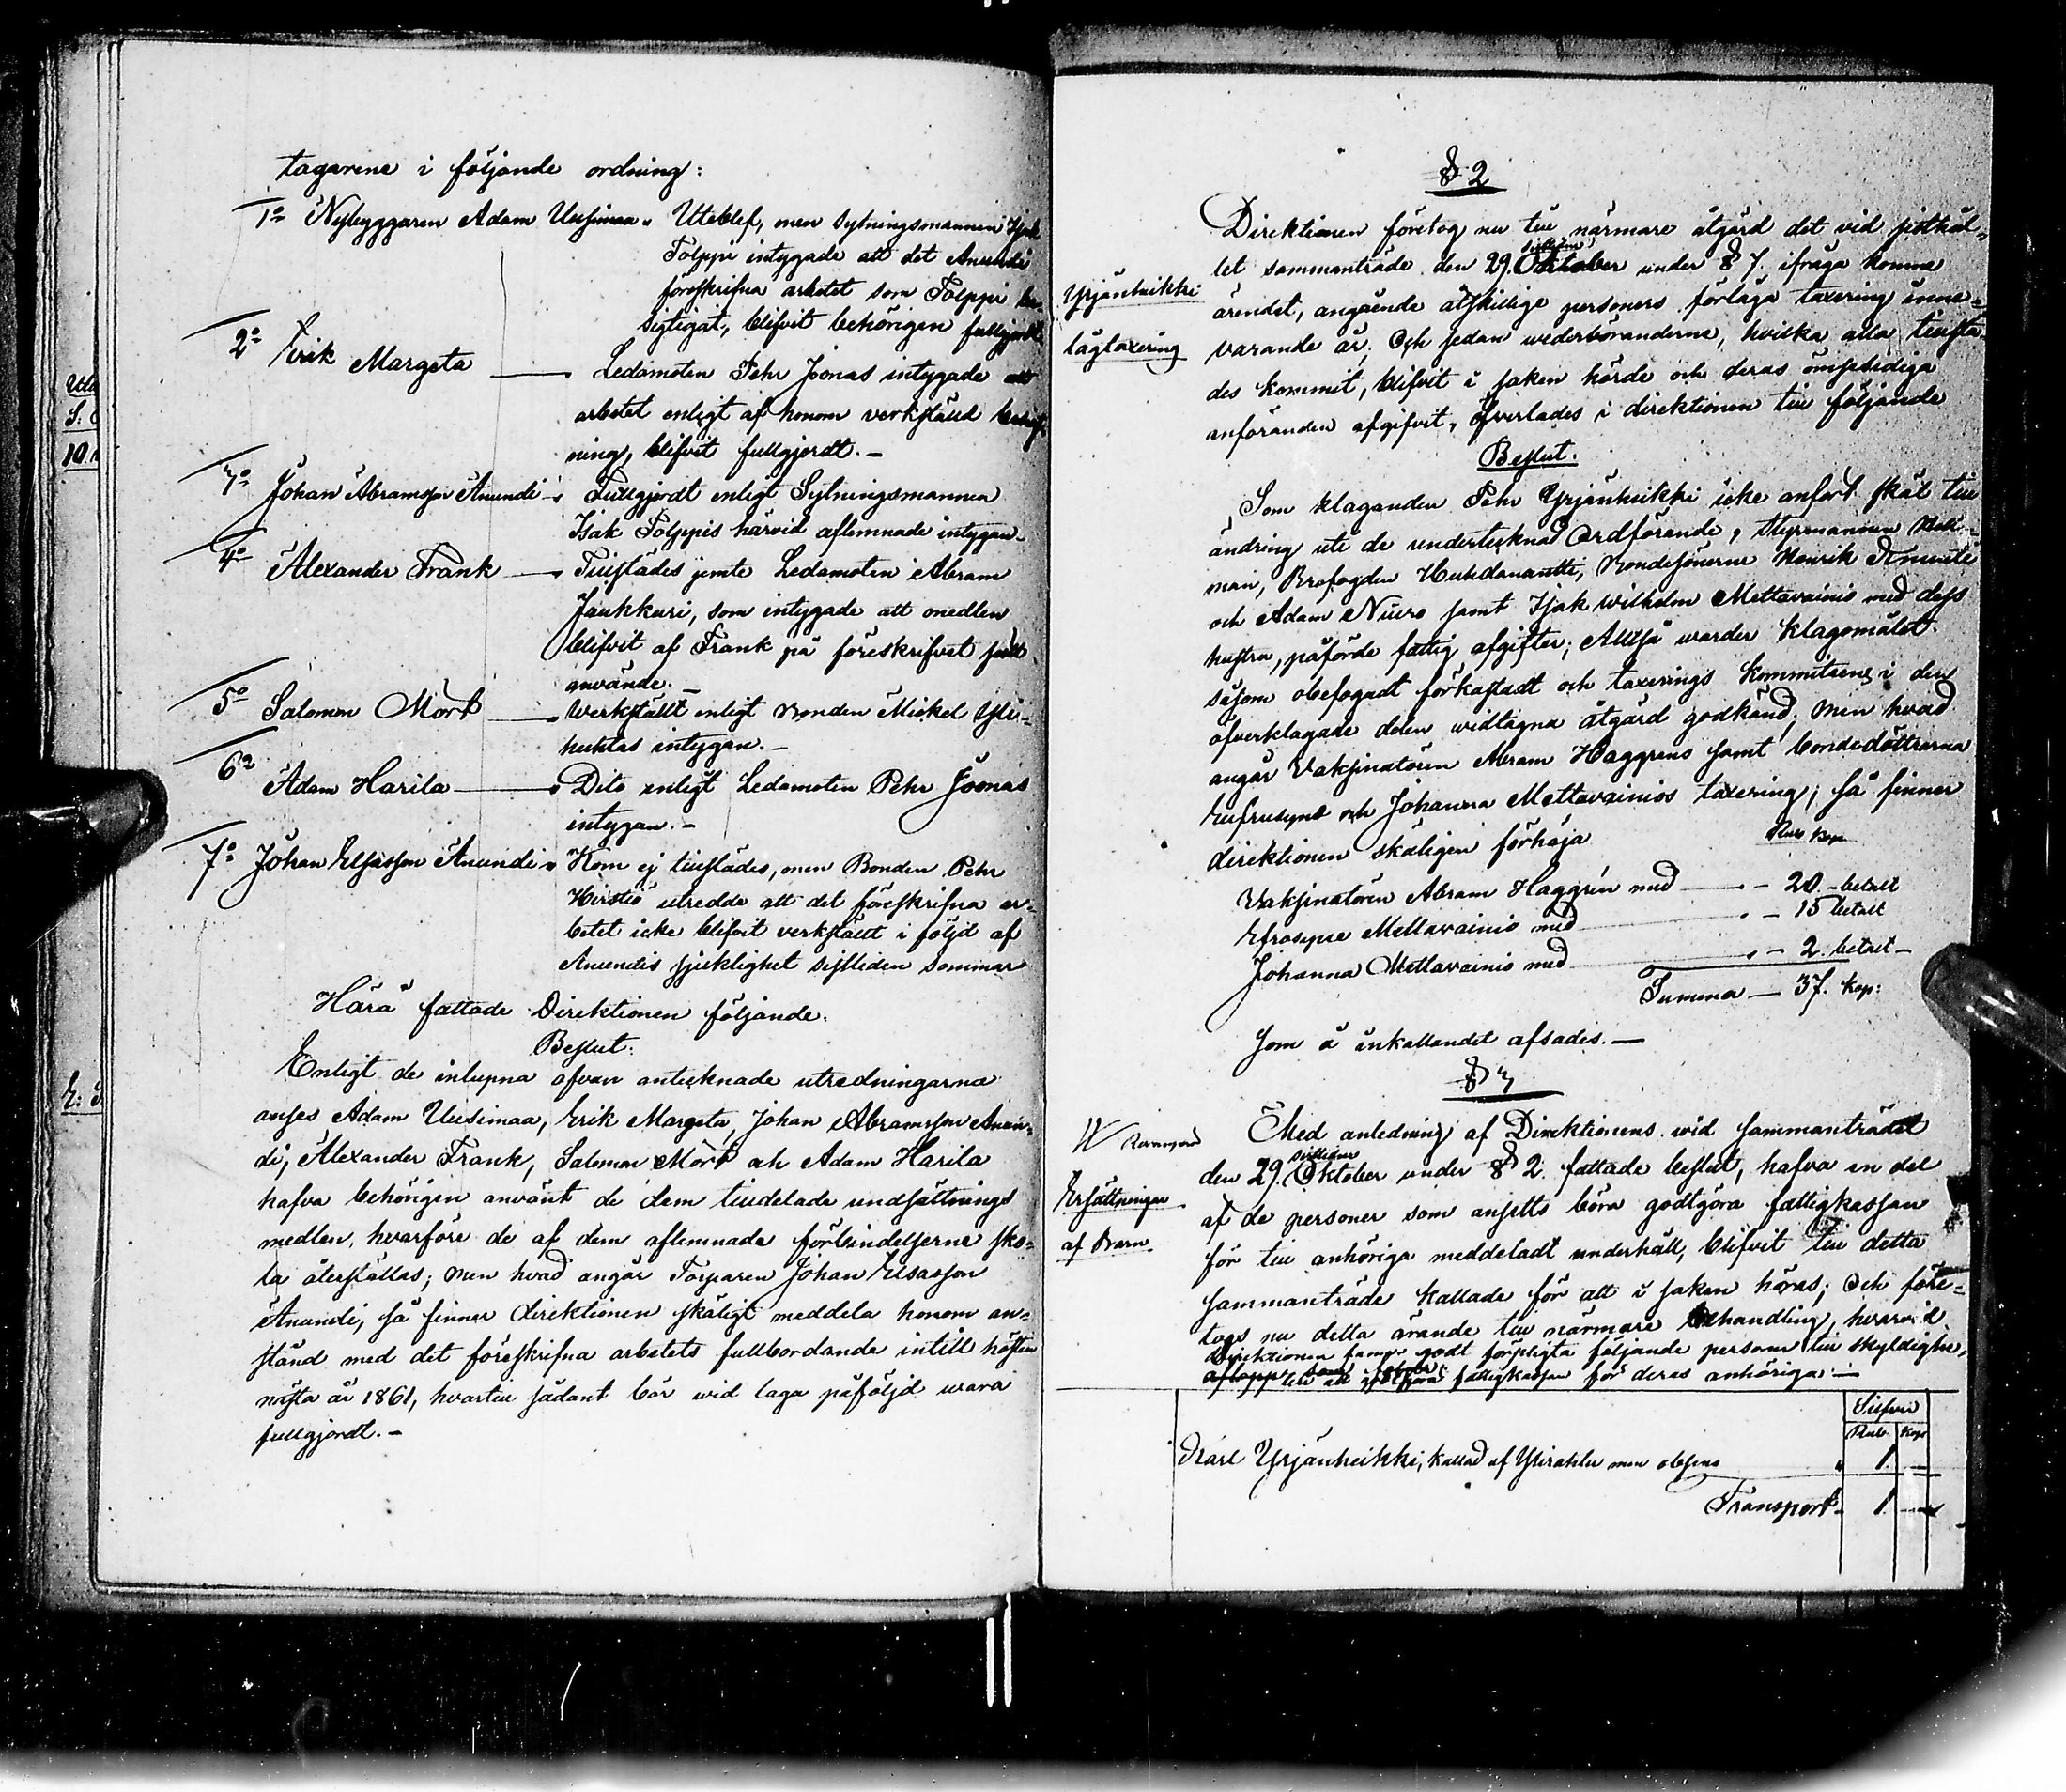 tagarene i följande ordning:
1o Nybyggaren Adam Uusimaa. Uteblef, men Sytningsmannen Isak
Tolppi intygade att det Anundi
föreskrifna arbetet som Tolppi be-
sigtigat, blifvit behörigen fullgjordt
2o Erik Margeta — Ledamoten Pehr Joonas intygade att
arbetet enligt af honom verkställd besigt-
ning, blifvit fullgjordt. —
3o Johan Abramsson Anundi — Fullgjordt enligt Sytningsmannen
Isak Tolppis härvid aflemnade intygan —
4o Alexander Frank — Tillstädes jemte Ledamoten Abram
Jaukkuri, som intygade att medlen
blifvit af Frank på föreskrifvet sätt
använde. —
5o Salomon Mört — Werkställt enligt Bonden Mickel Yli-
huhtas intygan. —
6o Adam Harila — Dito enligt Ledamoten Pehr Joonas
intygan. —
7o Johan Elsasson Anundi — Kom ej tillstädes, men Bonden Pehr
Hirstiö utredde att det föreskrifna ar-
betet icke blifvit verkställt i följd af
Anundis sjuklighet sistliden sommar
Härå fattade Direktionen följande.
Beslut:
Enligt de inlupna ofvan antecknade utredningarna
anses Adam Uusimaa, Erik Margeta, Johan Abramsson Anun-
di, Alexander Frank, Salomon Mört och Adam Harila
hafva behörigen använt de dem tilldelade undsättnings
medlen, hvarföre de af dem aflemnade förbindelserne sko-
la återställas; men hvad angår Torparen Johan Elsasson
Anundi, så finner direktionen skäligt meddela honom an-
stånd med det föreskrifna arbetets fullbordande intill hösten
nästa år 1861, hvartill sådant bör wid laga påföljd wara
fullgjordt. —
§ 2
Direktionen företog nu till närmare åtgärd det vid sisthål-
let sammanträde den 29. sistlidne Oktober under § 7. ifråga komna
Yrjänheikki
ärendet, angående åtskillige personers förlåga taxering inne-
lågtaxering
varande år. Och sedan wederbönderne, hvilka alla tillstä-
des kommit, blifvit i saken hörde och deras ömsesidiga
anföranden afgifvit, öfverlades i direktionen till följande
Beslut.
Som klaganden Pehr Yrjänheikki icke anfört skäl till
ändring uti de undertecknad Ordförande, Styrmannen
man, Brofogden Huhdanantti, Bondesönerne Henrik
och Adam Niiro samt Isak Wilhelm Mettavainio med dess
hustru, påförde fattig afgifter; Alltså warder klagomålet
såsom obefogadt förkastadt och taxerings Kommiteens i den
öfverklagade delen widtagna åtgärd godkänd; men hvad
angår Vaksinatören Abram Haggrens samt bondedöttrarna
Eufrusyne och Johanna Mettavainios taxering; så finner
direktionen skäligen förhöja
Rub Kop
Vaksinatören Abram Haggrén med — 20. — betalt
Efrosyne Mettavainio med — 15 betalt
Johanna Mettavainio med — 2. betalt —
Summa — 37. Kop:
som å inkallandet afsades. —
§ 3
Med anledning af Direktionens wid sammanträdet
den 29. sistlidne Oktober under § 2. fattade beslut, hafva en del
Ersättningar
af Barn.
af de personer som ansetts böra godtgöra fattigkassan
för till anhöriga meddeladt underhåll, blifvit till detta
sammanträde kallade för att i saken höras; Och före-
togs nu detta ärande till närmare behandling, hvarvid
Direktionen fann godt förpligta följande personer till skyldighe-
fattigkassan för deras anhöriga: —
Silfver
Rub. Kop
Karl Yrjänheikki, kallad af men „ 1. —
Transport — 1. —